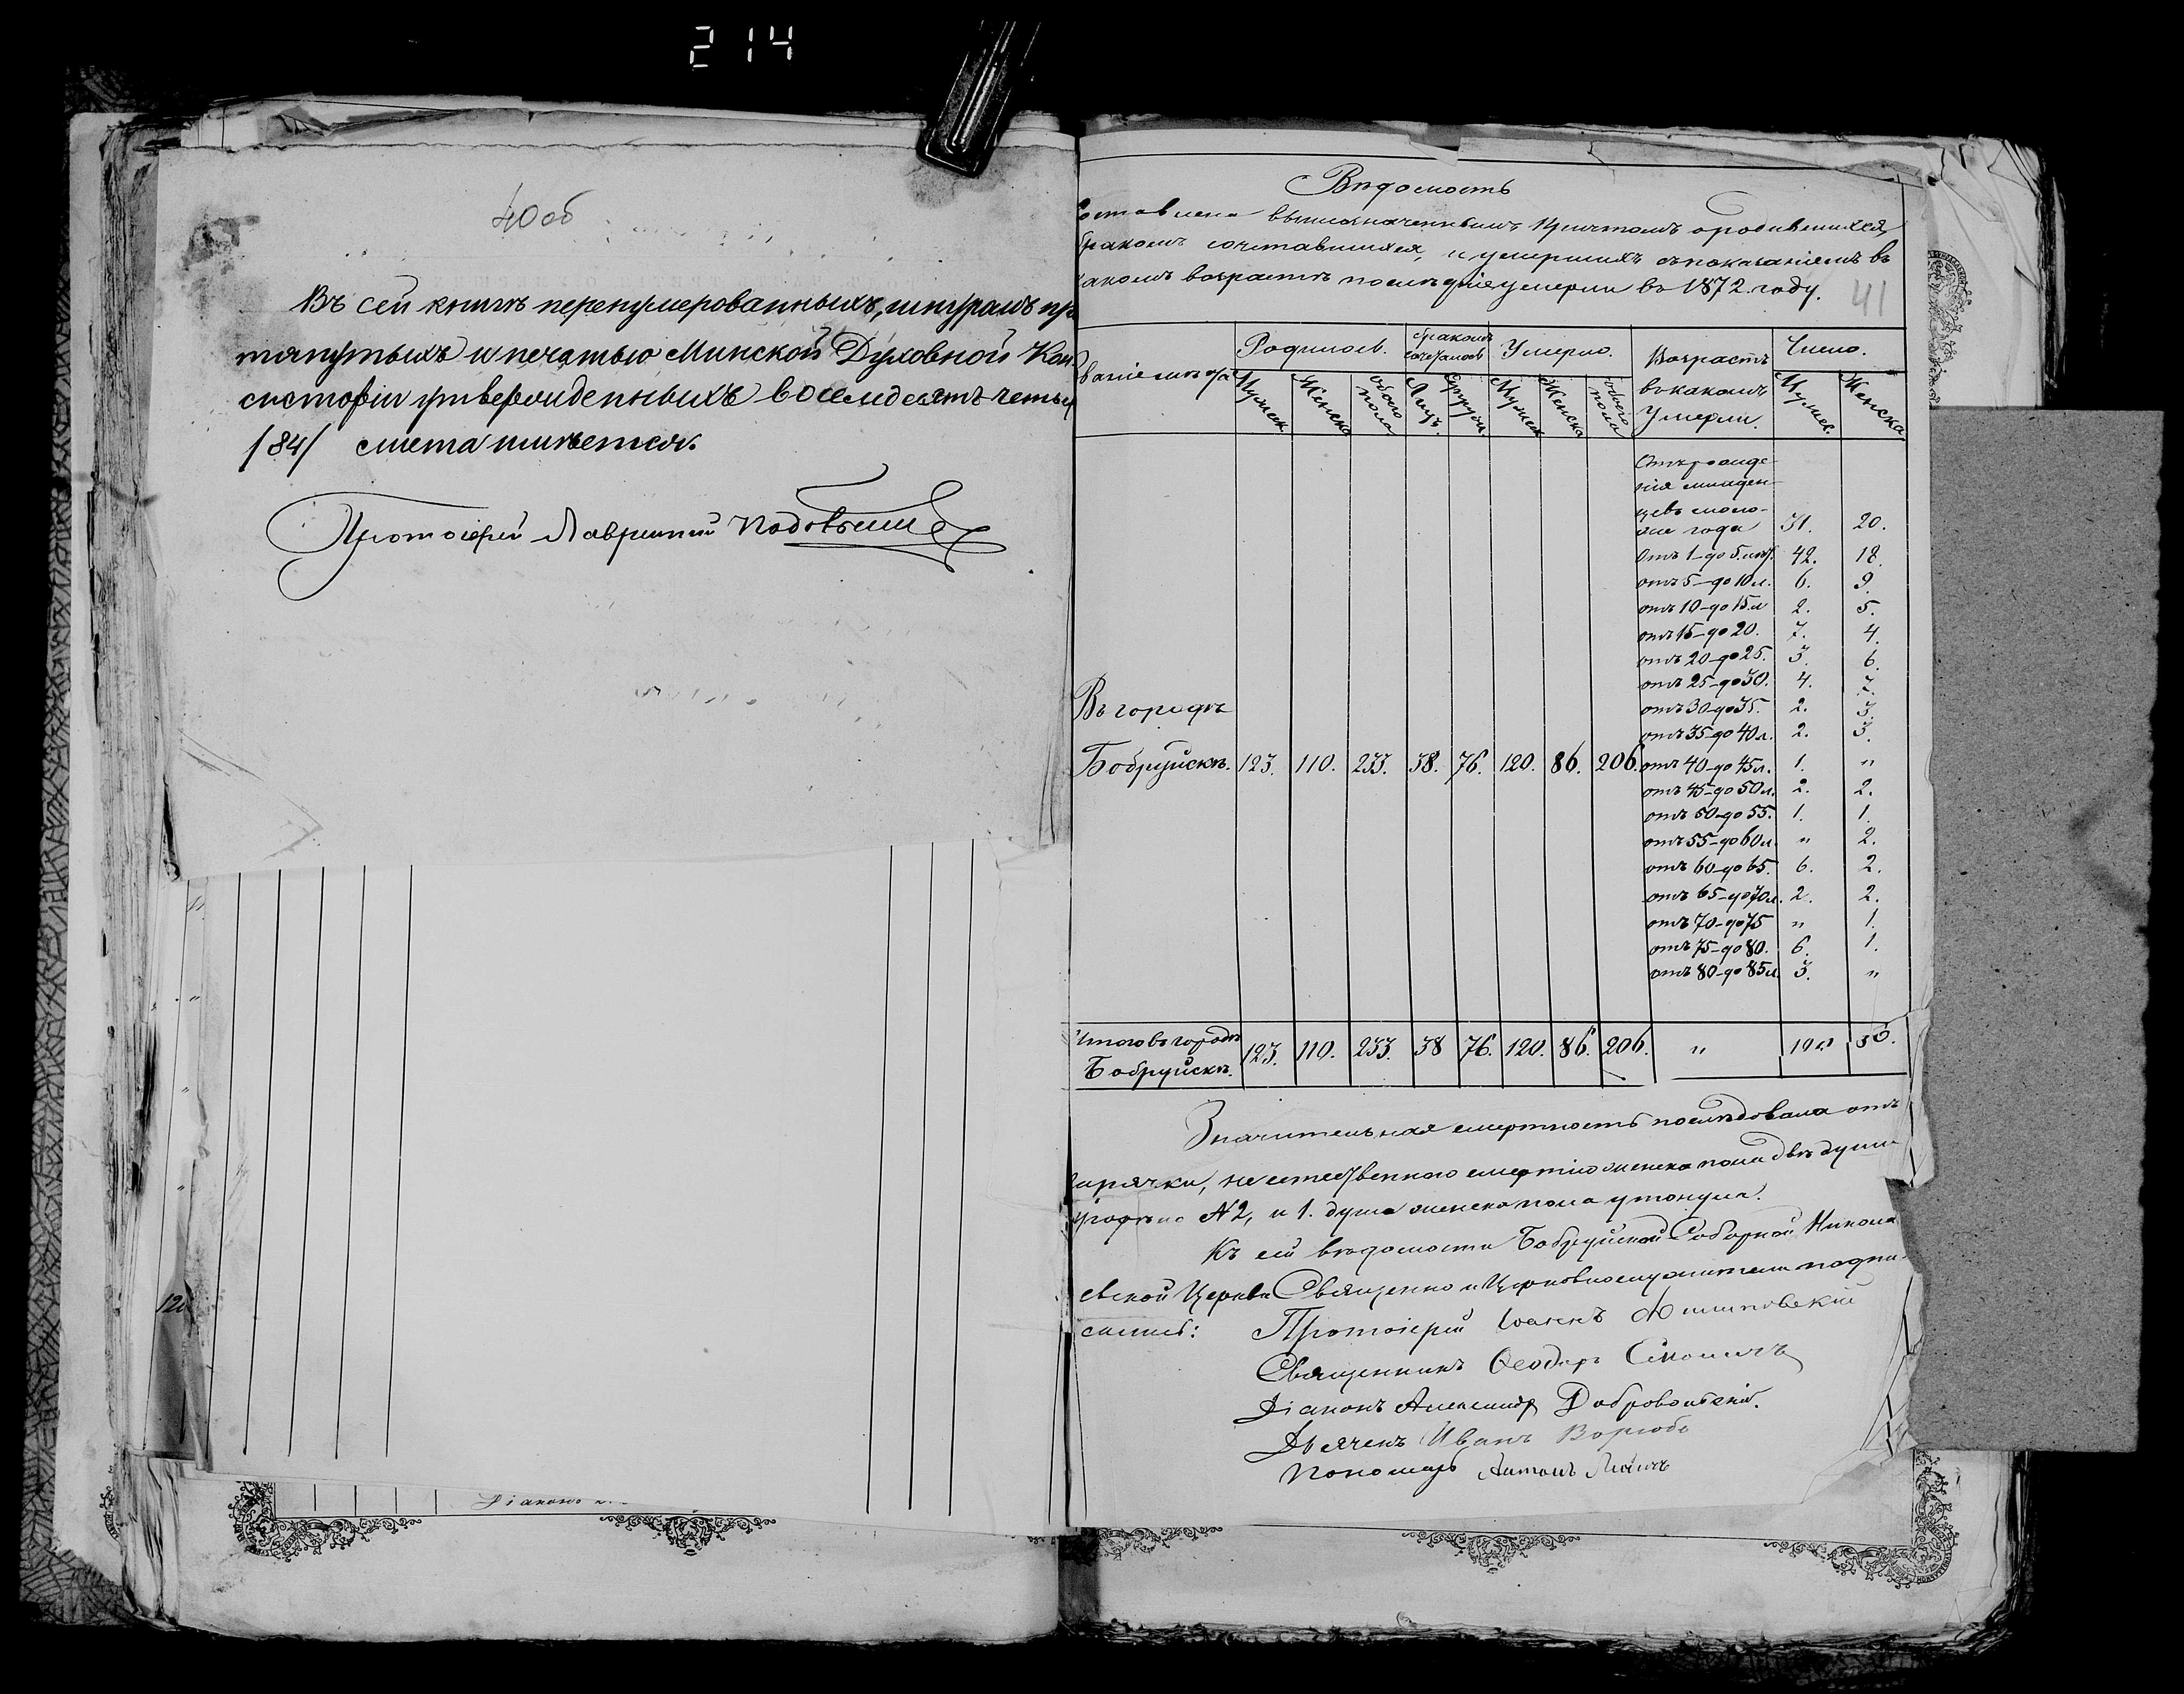 214
40 об
Въ сей книгѣ перенумерованныхъ, шнуромъ про
тянутыхъ и печатью Минской Духовной Кон
систоріи утвержденныхъ восемдесятъ четыр
/84/ листа имѣется.
Протоіерей Лаврентій
120
Діаконъ
Вѣдомость
составлена вышеозначеннымъ Причтомъ о родившихся,
бракомъ сочетавшихся, и умершихъ съ показаніемъ въ
какомъ возрастѣ послѣдніе умерли въ 1872. году.
41
Родилось. Бракомъ сочеталось Умерло. Возрастъ въ какомъ умерли. Число.
ваніе мѣста Мужеск. Женска Обоего пола Лицъ. Супруж. Мужеск Женска Обоего пола Мужес. Женска
Отъ рожде-
нія младен-
цевъ моло-
же года 31. 20.
Отъ 1-до 5. лѣт. 42. 18.
отъ 5-до 10 л. 6. 9.
отъ 10-до 15. л 2. 5.
отъ 15-до 20. 7. 4.
отъ 20-до 25. 3. 6.
отъ 25-до 30. 4. 7.
Въ городѣ отъ 30-до 35. 2. 3.
отъ 35-до 40 л. 2. 3.
Бобруйскѣ. 123. 110. 233. 38. 76. 120. 86. 206. отъ 40-до 45 л. 1. "
отъ 45-до 50 л. 2. 2.
отъ 50-до 55. 1. 1.
отъ 55-до 60 л. " 2.
отъ 60-до 65. 6. 2.
отъ 65-до 70 л. 2. 2.
отъ 70-до 75 " 1.
отъ 75-до 80. 6. 1.
отъ 80-до 85 л 3. "
Итого въ городѣ
Бобруйскѣ. 123. 110. 233. 38 76. 120. 86. 206. " 120 86.
Значительная смертность послѣдовала отъ
горячки, неестественною смертію женска пола двѣ души
№ 2, и 1. душа женска пола утонула.
Къ сей вѣдомости Бобруйской Соборной Никола
евской Церкви Священно и Церковнослужители подпи-
сались: Протоіерей Іоаннъ
Священникъ Ѳеодоръ
Діаконъ Александръ Добровольскій.
Дьячекъ Иванъ
Пономарь Антонъ